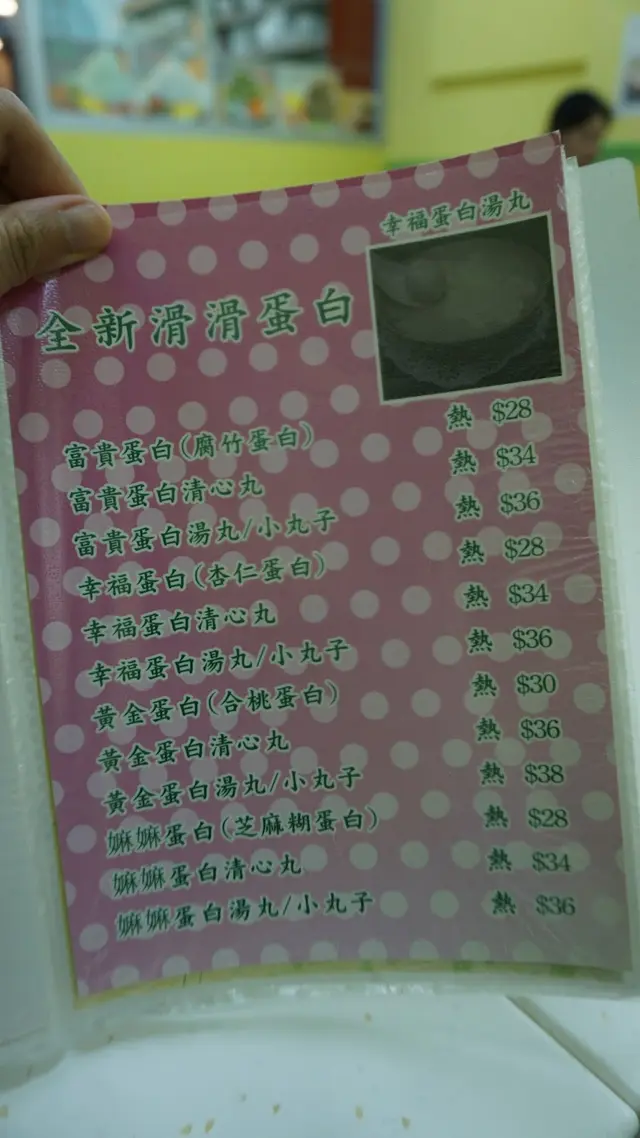 幸福蛋白湯丸
全新滑滑蛋白
富貴蛋白(腐竹蛋白) 熱 $28
富貴蛋白清心丸 熱 $34
富貴蛋白湯丸/小丸子 熱 $36
幸福蛋白(杏仁蛋白) 熱 $28
幸福蛋白清心丸 熱 $34
幸福蛋白湯丸/小丸子 熱 $36
黃金蛋白(合桃蛋白) 熱 $30
黃金蛋白清心丸 熱 $36
黃金蛋白湯丸/小丸子 熱 $38
嫲嫲蛋白(芝麻糊蛋白) 熱 $28
嫲嫲蛋白清心丸 熱 $34
嫲嫲蛋白湯丸/小丸子 熱 $36